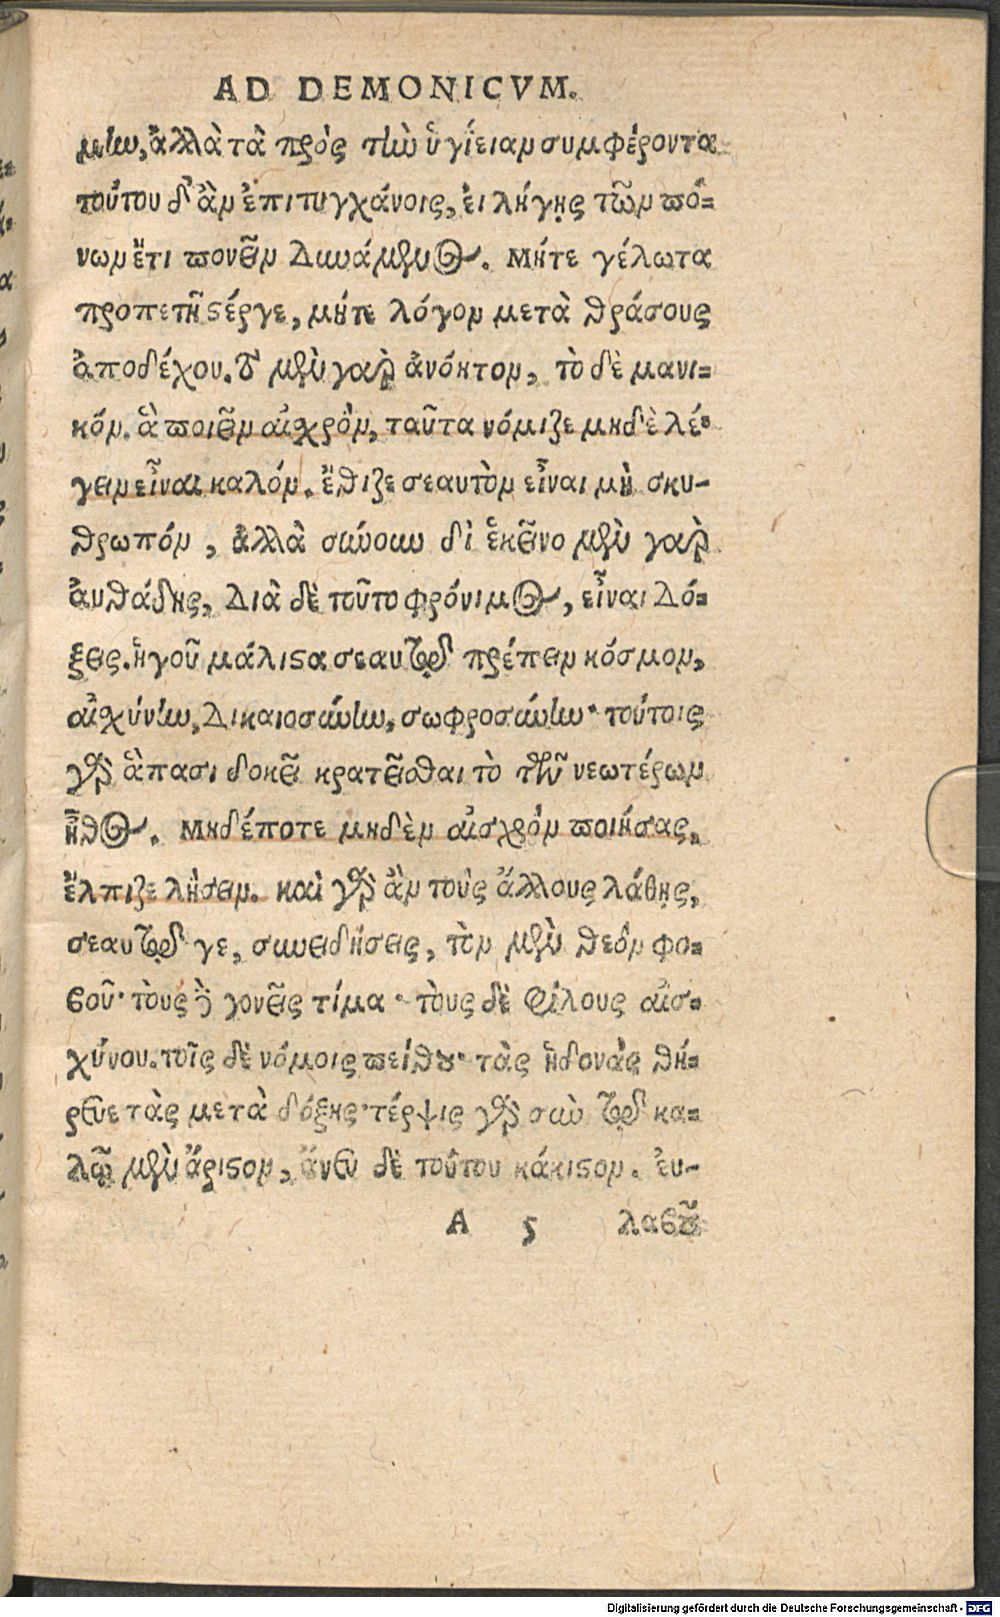 AD DEMONICVM.
μὴν, ἀλλὰ τὰ πρὸς τὴν ὑγίειαν συμφέροντα
τούτου δ' ἂν ἐπιτυγχάνοις, ἐι λήγῃς τῶν πό-
νων ἔτι πονεῖν δυνάμενος. Μήτε γέλωτα
προπετῆ στέργε, μήτε λόγον μετὰ θράσους
ἀποδέχου. τὸ μὲν γαρ ἀνόητον, τὸ δὲ μανι-
κόν. ἃ ποιεῖν αἰχρὸν, ταῦτα νόμιζε μηδὲ λέ-
γειν εἶναι καλόν. ἔθιζε σεαυτὸν εἶναι μὴ σκυ-
θρωπόν, ἀλλὰ σύνουν δἰ ἐκεῖνο μὲν γαρ
ἀυθάδης, διὰ δὲ τοῦτο φρόνιμος, εἶναι δό-
ξεις. ἡγοῦ μάλιστα σεαυτῷ πρέπειν κόσμον,
αἰχύνην, δικαιοσύνην, σωφροσύνην· τούτοις
γὰρ ἅπασι δοκεῖ κρατεῖσθαι τὸ τῶν νεωτέρων
ἦθος. Μηδέποτε μηδὲν αἰσχρὸν ποιήσας,
ἔλπιζε λήσειν. καὶ γὰρ ἂν τοὺς ἄλλους λάθῃς,
σεαυτῷ γε, συνειδήσεις, τὸν μὲν θεὸν φο-
βοῦ· τοὺς δὲ γονεῖς τίμα· τοὺς δὲ φίλους αἰσ-
χύνου. τοῖς δὲ νόμοις πείθου· τὰς ἡδονὰς θή-
ρευε τὰς μετὰ δόξης· τέρψις γὰρ σὺν τῷ κα-
λῷ μὲν ἄριστον, ἄνευ δὲ τούτου κάκιστον. ἐυ-
A 5 λαβοῦ